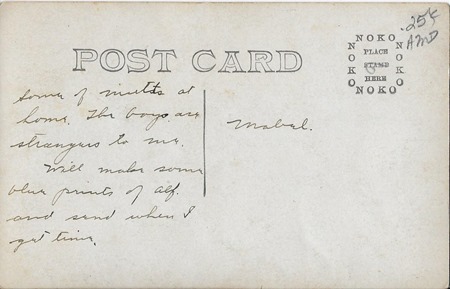 .25¢
AMD
POST CARD
NOKO
NOKO
PLACE
STAMP
HERE
NOKO
NOKO
Some of mutts at
home. The boys are
strangers to me.
Will make some
blue prints of alf.
and send when I
get time.
Mabel.